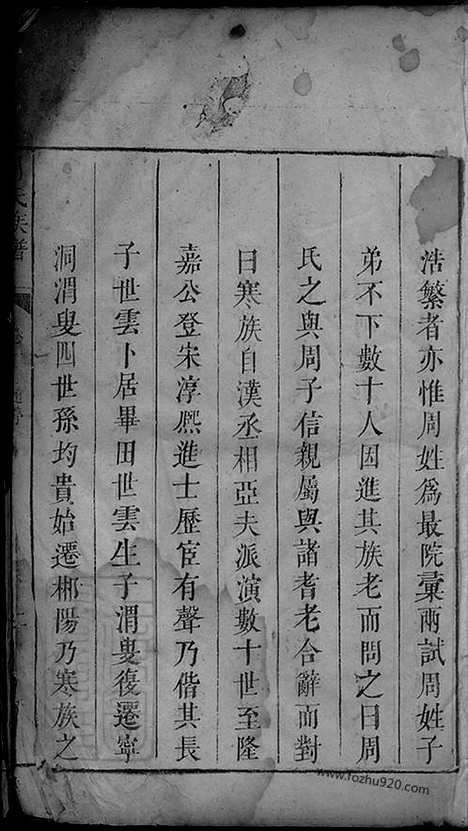 浩繁者亦惟周姓爲最院彙兩試周姓子
弟不下數十人因進其族老而問之曰周
氏之與周子信親屬與諸耆老合辭而對
曰寒族自漢丞相亞夫派演數十世至隆
嘉公登宋淳熈進士歷宦有聲乃偕其長
子世雲卜居畢田世雲生子渭叟復遷寧
洞渭叟四世孫均貴始遷郴陽乃寒族之
氏族譜
www.fozhu920.com